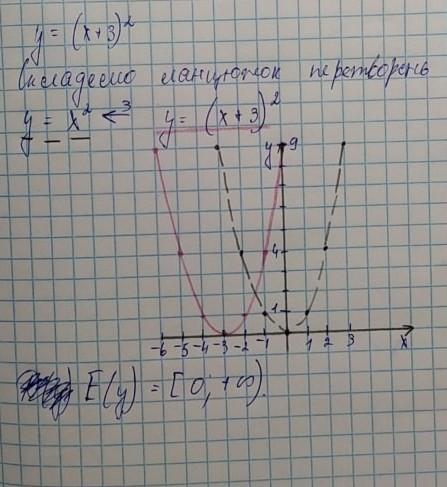 y = (x+3)²
Складемо ланцюжок перетворень
y = x² ←³ y = (x+3)²
y 9
4
1
-6 -5 -4 -3 -2 -1 1 2 3 x
E(y) = [0; +∞).